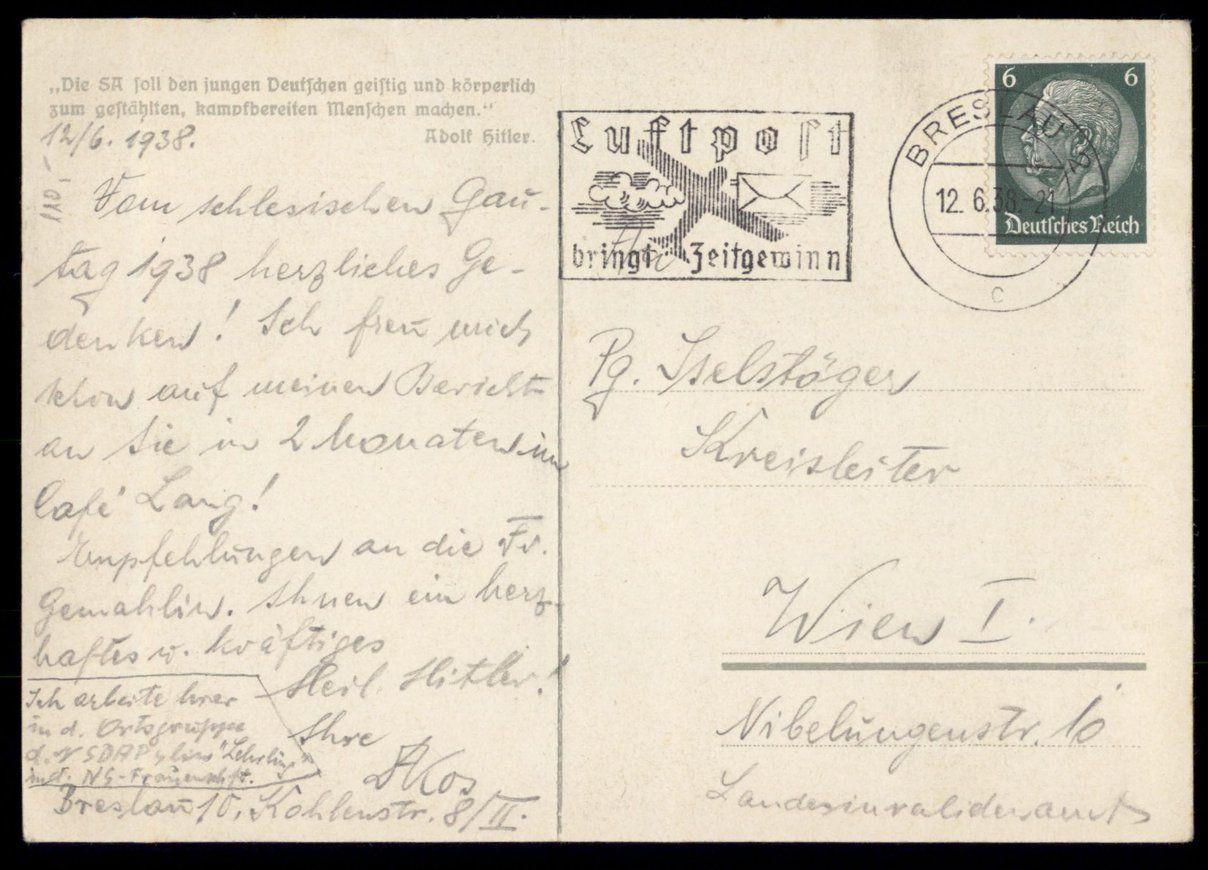 „Die SA soll den jungen Deutschen geistig und körperlich
zum gestählten, kampfbereiten Menschen machen."
Adolf Hitler.
12/6. 1938.
110.-
Vom schlesischen Gau-
tag 1938 herzliches Ge-
denken! Ich freu mich
schon auf meinen Bericht
an Sie in 2 Monaten im
Café Lang!
Empfehlungen an die Fr.
Gemahlin. Ihnen ein herz-
haftes u. kräftiges
Heil Hitler!
Ihre
AKos
Ich arbeite hier
in d. Ortsgruppe
d. NSDAP "Lehrling"
in d. NS-Frauenschft.
Breslau 10, Kohlenstr. 8/II.
Luftpost
bringt Zeitgewinn
BRESLAU 2
12. 6.38.-21
c
6 6
Deutsches Reich
Pg. Iselstöger
Kreisleiter
Wien I.
Nibelungenstr. 10
Landesinvalidenamt